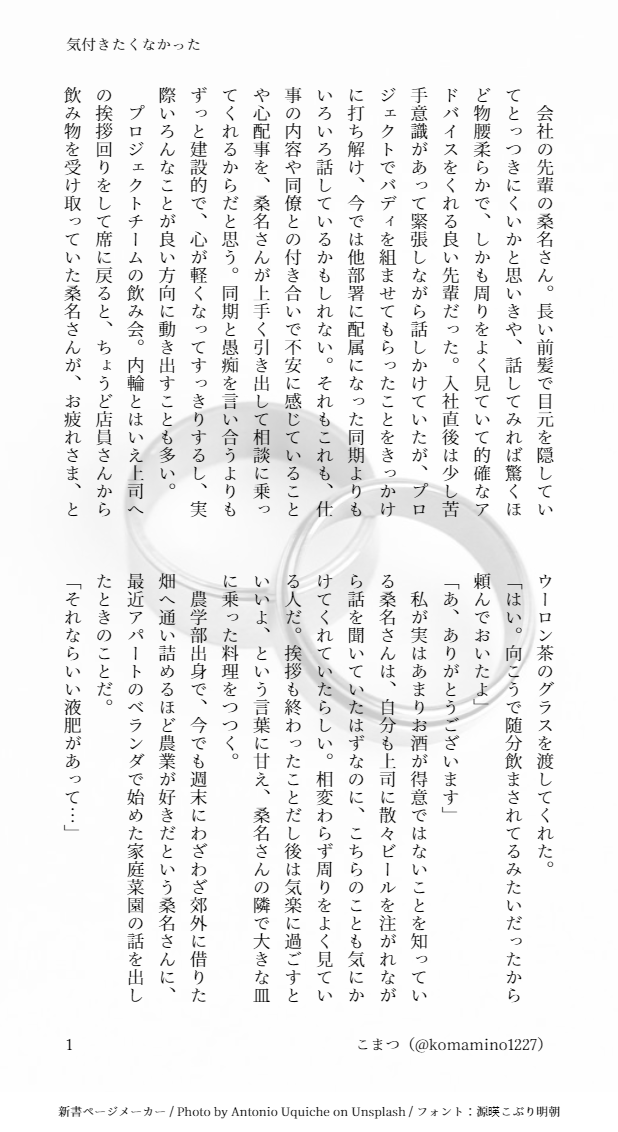 気付きたくなかった
　会社の先輩の桑名さん。長い前髪で目元を隠してい
てとっつきにくいかと思いきや、話してみれば驚くほ
ど物腰柔らかで、しかも周りをよく見ていて的確なア
ドバイスをくれる良い先輩だった。入社直後は少し苦
手意識があって緊張しながら話しかけていたが、プロ
ジェクトでバディを組ませてもらったことをきっかけ
に打ち解け、今では他部署に配属になった同期よりも
いろいろ話しているかもしれない。それもこれも、仕
事の内容や同僚との付き合いで不安に感じていること
や心配事を、桑名さんが上手く引き出して相談に乗っ
てくれるからだと思う。同期と愚痴を言い合うよりも
ずっと建設的で、心が軽くなってすっきりするし、実
際いろんなことが良い方向に動き出すことも多い。
　プロジェクトチームの飲み会。内輪とはいえ上司へ
の挨拶回りをして席に戻ると、ちょうど店員さんから
飲み物を受け取っていた桑名さんが、お疲れさま、と
ウーロン茶のグラスを渡してくれた。
「はい。向こうで随分飲まされてるみたいだったから
頼んでおいたよ」
「あ、ありがとうございます」
　私が実はあまりお酒が得意ではないことを知ってい
る桑名さんは、自分も上司に散々ビールを注がれなが
ら話を聞いていたはずなのに、こちらのことも気にか
けてくれていたらしい。相変わらず周りをよく見てい
る人だ。挨拶も終わったことだし後は気楽に過ごすと
いいよ、という言葉に甘え、桑名さんの隣で大きな皿
に乗った料理をつつく。
　農学部出身で、今でも週末にわざわざ郊外に借りた
畑へ通い詰めるほど農業が好きだという桑名さんに、
最近アパートのベランダで始めた家庭菜園の話を出し
たときのことだ。
「それならいい液肥があって…」
1
こまつ（@komamino1227）
新書ページメーカー / Photo by Antonio Uquiche on Unsplash / フォント：源暎こぶり明朝